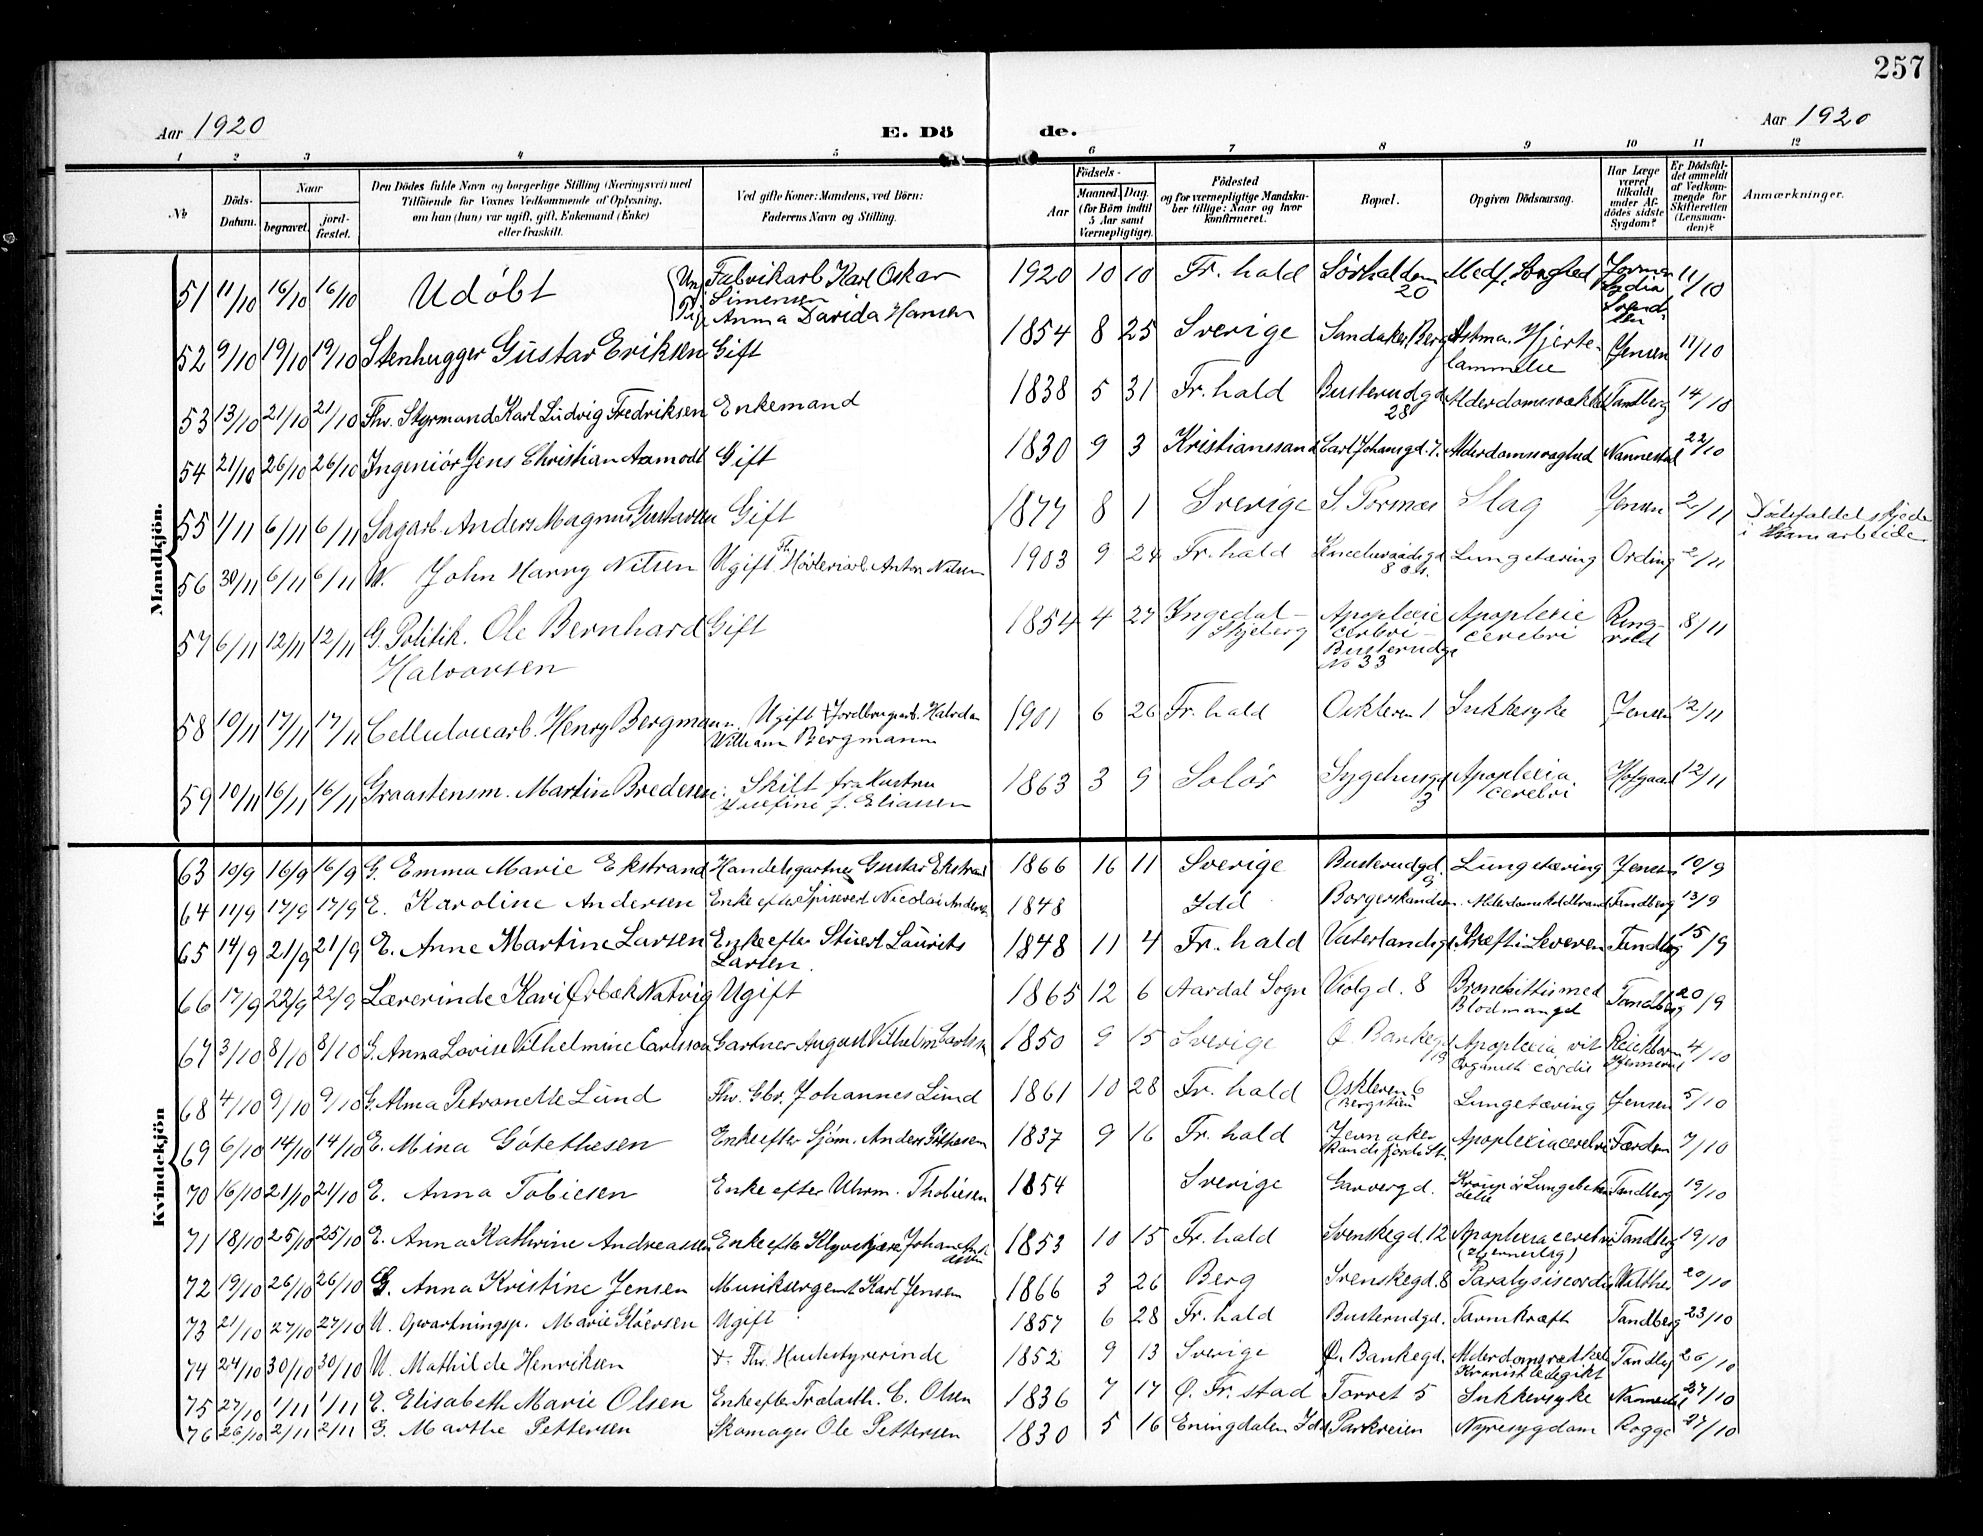 257
Aar 1920
E. Dö de.
Aar 1920
1 2 3 4 5 6 7 8 9 10 11 12
No
Döds-Datum.
Naar
begravet.
jord-fæstet.
Den Dödes fulde Navn og borgerlige Stilling (Næringsvei) med
Tilföiende for Voxnes Vedkommende af Oplysning,
om han (hun) var ugift, gift, Enkemand (Enke)
eller fraskilt.
Ved gifte Koner: Mandens, ved Börn:
Faderens Navn og Stilling.
Födsels-
Aar
Maaned. Dag.
(for Börn indtil
5 Aar samt
Værnepligtige).
Födested
og for værnepligtige Mandska-
ber tillige: Naar og hvor
konfirmeret.
Bopæl.
Opgiven Dödsaarsag.
Har Læge
været
tilkaldt
under Af-
dödes sidste
Sygdom?
Er Dödsfal-
det anmeldt
af Vedkom-
mende for
Skifteretten
(Lensman-
den)?
Anmærkninger.
Mandkjön.
51 11/10 16/10 16/10 Udöbt Fabrikarb Karl Oskar Simensen Anna Davida Hansen 1920 10 10 Fr. hald Sörhalden 20 11/10
52 9/10 19/10 19/10 Stenhugger Gustav Eriksen Gift 1854 8 25 Sverige Sandaker Berg Astma. Hjerte-lammelse Jensen 11/10
53 13/10 21/10 21/10 Fhv. Styrmand Karl Ludvig Fredriksen Enkemand 1838 5 31 Fr. hald Busterudgd 28 Tandberg 14/10
54 21/10 26/10 26/10 Ingeniör Jens Christian Aamodt Gift 1830 9 3 Kristianssand Carl Johansgd. 7. Alderdomssvaghed Nannestad 22/10
55 1/11 6/11 6/11 Sagarb Anders Magnus Gustavsen Gift 1877 8 1 Sverige Slag Jensen 2/11 Dödsfaldet skjede
56 30/11 6/11 6/11 U. John Harry Nilsen Ugift Anton Nilsen 1903 9 24 Fr. hald Lungetæring Ording 2/11
57 6/11 12/11 12/11 G. Politik. Ole Bernhard Halvorsen Gift 1854 4 27 Ingedal - Skjeberg Apoplexie cerebri - Busterudgd No 33 Apoplexie cerebri Ringvold 8/11
58 10/11 17/11 17/11 Cellulosearb. Henry Bergmann Ugift William Bergmann 1901 6 26 Fr. hald Oskleven 1 Sukkesyke Jensen 12/11
59 10/11 16/11 16/11 Graastensm. Martin Bredesen Skilt fra Hustru Josefine f. Eliassen 1863 3 9 Solör Sygehusgd 3 Apoplexia cerebri Hofgaard 12/11
Kvindekjön
63 10/9 16/9 16/9 G. Emma Marie Ekstrand Handelsgartner Gustav Ekstrand 1866 16 11 Sverige Busterudgd. 9 Lungetæring Jensen 10/9
64 11/9 17/9 17/9 E. Karoline Andersen Enke efter Nicolai Andersen 1848 Idd Tandberg 13/9
65 14/9 21/9 21/9 E. Anne Martine Larsen Enke efter Stuert Laurits Larsen. 1848 11 4 Fr. hald Vaterlandsgd Kræft i Leveren Tandberg 15/9
66 17/9 22/9 22/9 Lærerinde Kari Örbæk Natvig Ugift 1865 12 6 Aardal Sogn Violgd. 8 Bronchittis med Blodmangel Tandberg 20/9
67 3/10 8/10 8/10 G. Anna Lovise Vilhelmine Carlsson Gartner August Vilhelm Carlsson 1850 9 15 Sverige Ö. Bankegd 19 Apoplexia vit organisk cordis 4/10
68 4/10 9/10 9/10 G. Alma Petronelle Lund Fhv. Gbr. Johannes Lund 1861 10 28 Fr. hald Oskleven 6 (Bergstien) Lungetæring Jensen 5/10
69 6/10 14/10 14/10 E. Mina Götethesen Enke efter Sjöm. Anders 1837 9 16 Fr. hald Apoplexia cerebri Færden 7/10
70 16/10 21/10 21/10 E. Anna Tobiesen Enke efter Uhrm. Thobiesen 1854 Sverige Garvergd. Tandberg 19/10
71 18/10 25/10 25/10 E. Anna Kathrine Andreassen Enke efter Johan Andreassen 1853 10 15 Fr. hald Svenskegd. 12 Apoplexia cerebri (Hjerneslag) Tandberg 19/10
72 19/10 26/10 26/10 G. Anna Kristine Jensen Musiksergent Karl Jensen 1866 3 26 Berg Svenskegd. 8 Paralysis cordis Walther 20/10
73 21/10 27/10 27/10 U. Opvartningsp. Marie Ugift 1857 6 28 Fr. hald Busterudgd. Tarmkræft Tandberg 23/10
74 24/10 30/10 30/10 U. Mathilde Henriksen Fhv. Husbestyrerinde 1852 9 13 Sverige Ö. Bankegd. Kronisk ledegikt Tandbg 26/10
75 27/10 1/11 1/11 E. Elisabeth Marie Olsen Enke efter C. Olsen 1836 7 17 Ö. Fr. stad Torvet 5 Sukkersyke Nannestad 27/10
76 26/10 2/11 2/11 G. Marthe Pettersen Skomager Ole Pettersen 1830 5 16 Eningdalen Idd Parkveien Nyresygdom Rogge 27/10